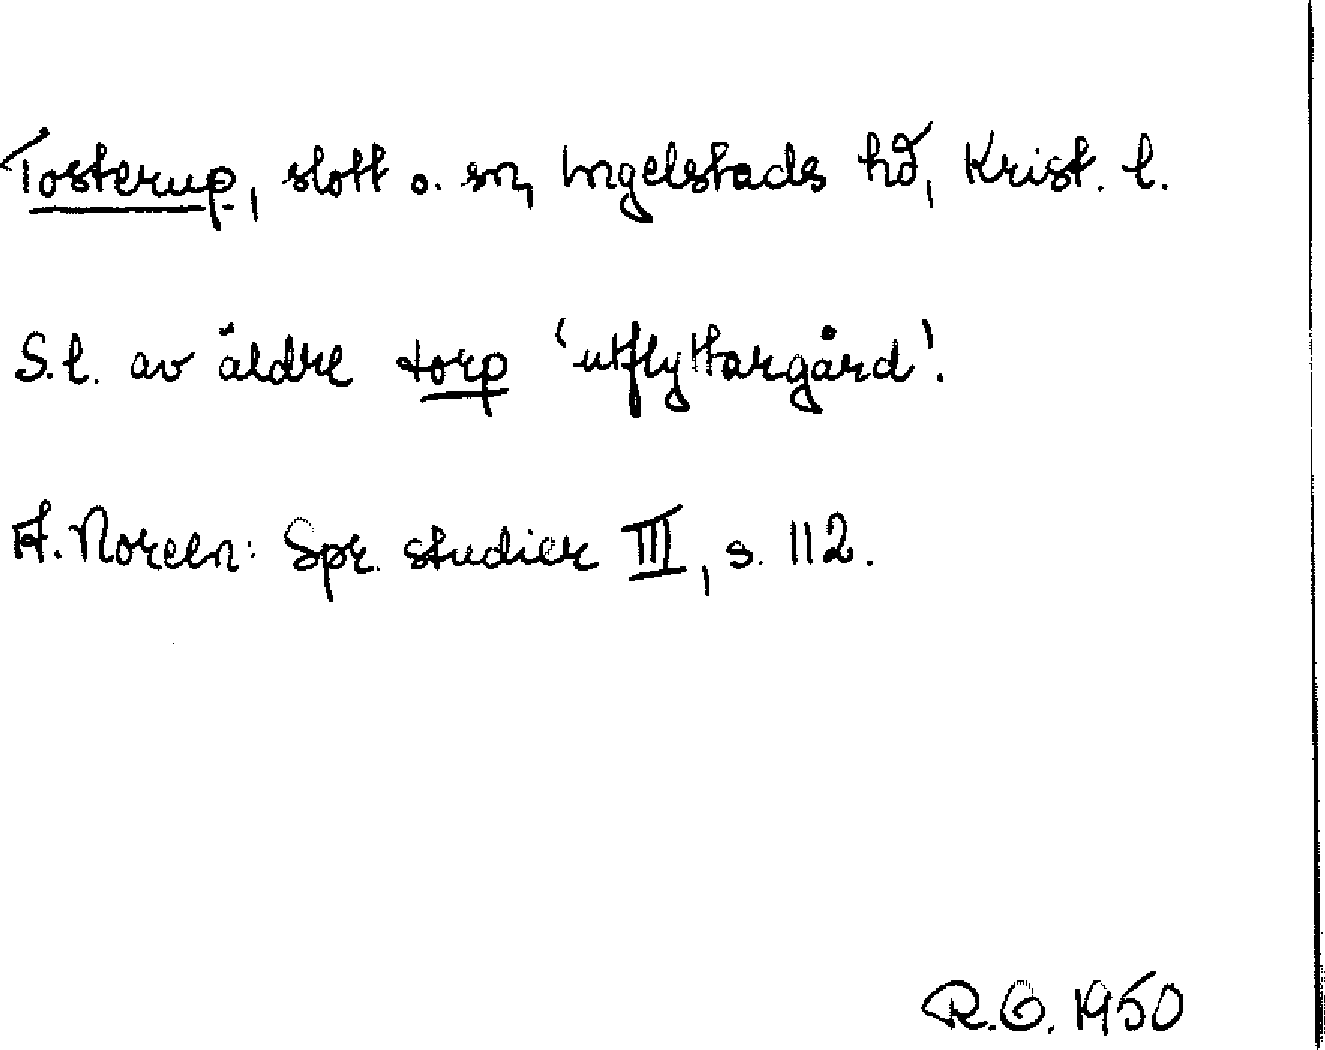 Tosterup, slott o. sn, Ingelstads hd, Krist. l.
S.l. av äldre torp 'utflyttargård'.
A. Noreen: Spr. studier III, s. 112.
R.G. 1950